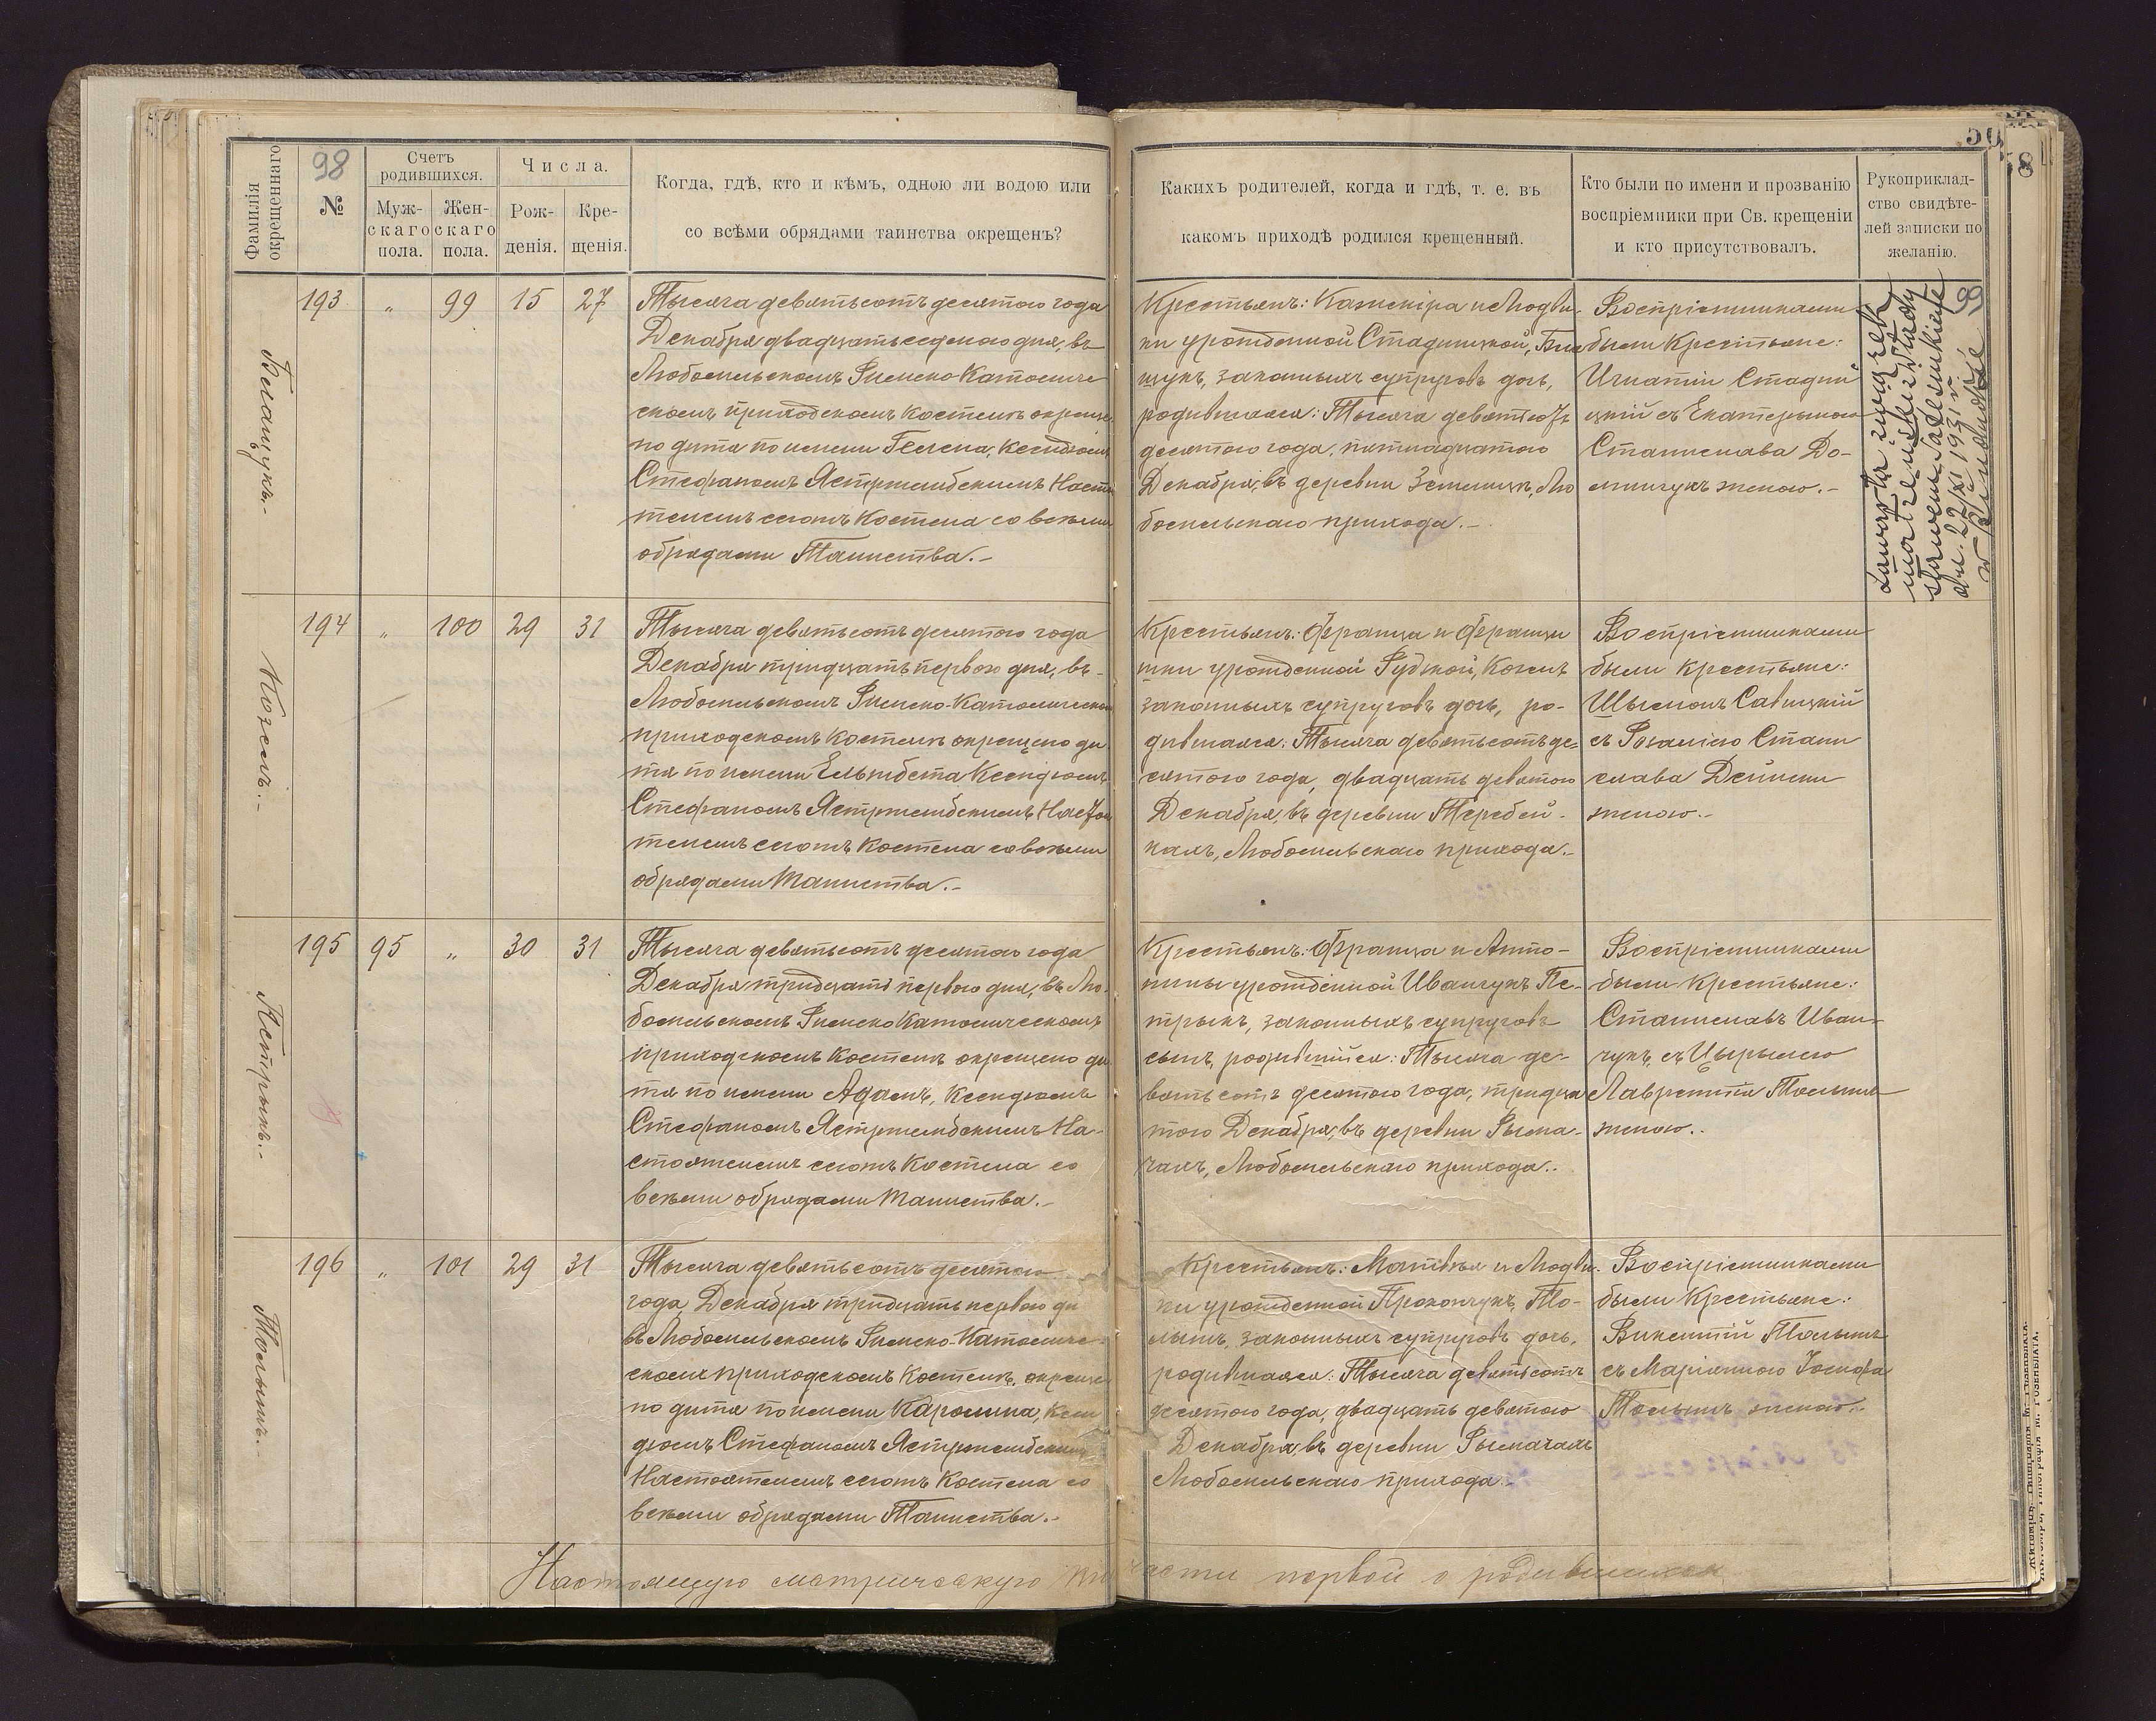 50
58
98
Фамилія окрещеннаго
№
Счетъ родившихся.
Муж-
скаго
пола.
Жен-
скаго
пола.
Числа.
Рож-
денія.
Кре-
щенія.
Когда, гдѣ, кто и кѣмъ, одною ли водою или
со всѣми обрядами таинства окрещенъ?
Какихъ родителей, когда и гдѣ, т. е. въ
какомъ приходѣ родился крещенный.
Кто были по имени и прозванію
воспріемники при Св. крещеніи
и кто присутствовалъ.
Рукоприклад-
ство свидѣте-
лей записки по
желанію.
Белащукъ.-
193 " 99 15 27
Тысяча девятьсотъ десятого года
Декабря двадцать седмого дня, въ
Любомльскомъ Римско-Католиче
скомъ приходскомъ Костелѣ окреще
но дитя по имени Гелена, Ксендзомъ
Стефаномъ Ястржембскимъ Насто
телемъ сегожъ Костела со всѣми
обрядами Таинства.-
Крестьянъ: Казиміра и Людви-
ки урожденной Стадницкой, Бела
щукъ, законныхъ супруговъ дочь,
родившаяся: Тысяча девятьсотъ
десятого года, пятнадцатого
Декабря, въ деревни Землицѣ, Лю
бомльскаго прихода.-
Воспріемниками
были Крестьяне:
Игнатій Стадни
цкій съ Екатериною
Станислава До-
минчукъ женою.-
99
dn. 22/XI 1931 r.
194 " 100 29 31
Козелъ.-
Тысяча девятьсотъ десятого года
Декабря тридцать первого дня, въ
Любомльскомъ Римско-Католическомъ
приходскомъ Костелѣ окрещено ди
тя по имени Ельжбета Ксендзомъ
Стефаномъ Ястржембскимъ Насто
телемъ сегожъ Костела со всѣми
обрядами Таинства.-
Крестьянъ: Франца и Франци
шки урожденной Рудской, Козелъ
законныхъ супруговъ дочь, ро-
дившаяся: Тысяча девятьсотъ де-
сятого года, двадцать девятого
Декабря, въ деревни Теребей-
кахъ, Любомльскаго прихода.-
Воспріемниками
были крестьяне:
Щымонъ Савицкій
съ Розаліею Стани
слава Дейнеки
женою.-
195 95 " 30 31
Петрыкъ.-
Тысяча девятьсотъ десятого года
Декабря тридцать первого дня, въ Лю-
бомльскомъ Римско Католическомъ
приходскомъ Костелѣ окрещено ди
тя по имени Адамъ, Ксендзомъ
Стефаномъ Ястржембскимъ На-
стоятелемъ сегожъ Костела со
всѣми обрядами Таинства.-
Крестьянъ: Франца и Анто-
нины урожденной Иванчукъ Пе-
трыкъ, законныхъ супруговъ
сынъ, родившійся: Тысяча де-
вятьсотъ десятого года, тридца
того Декабря, въ деревни Рыма-
чахъ, Любомльскаго прихода.-
Воспріемниками
были Крестьяне:
Станиславъ Иван-
чукъ, съ Цырылею
Лаврентія Толыша
женою.-
196 " 101 29 31
Толышъ.-
Тысяча девятьсотъ десятого
года Декабря тридцать первого дн
въ Любомльскомъ Римско-Католиче-
скомъ приходскомъ Костелѣ, окреще
но дитя по имени Каролина, Ксен
дзомъ Стефаномъ Ястржембскимъ
Настоятелемъ сегожъ Костела со
всѣми обрядами Таинства.-
Крестьянъ: Матвѣя и Людви-
ки урожденной Прокопчукъ, То-
лышъ, законныхъ супруговъ дочь,
родившаяся: Тысяча девятьсотъ
десятого года, двадцать девятого
Декабря, въ деревни Рымачахъ
Любомльскаго прихода.-
Воспріемниками
были Крестьяне:
Викентій Толышъ
съ Маріанною Іосифа
Толышъ женою.-
Настоящую метрическую кн части первой о родившихся